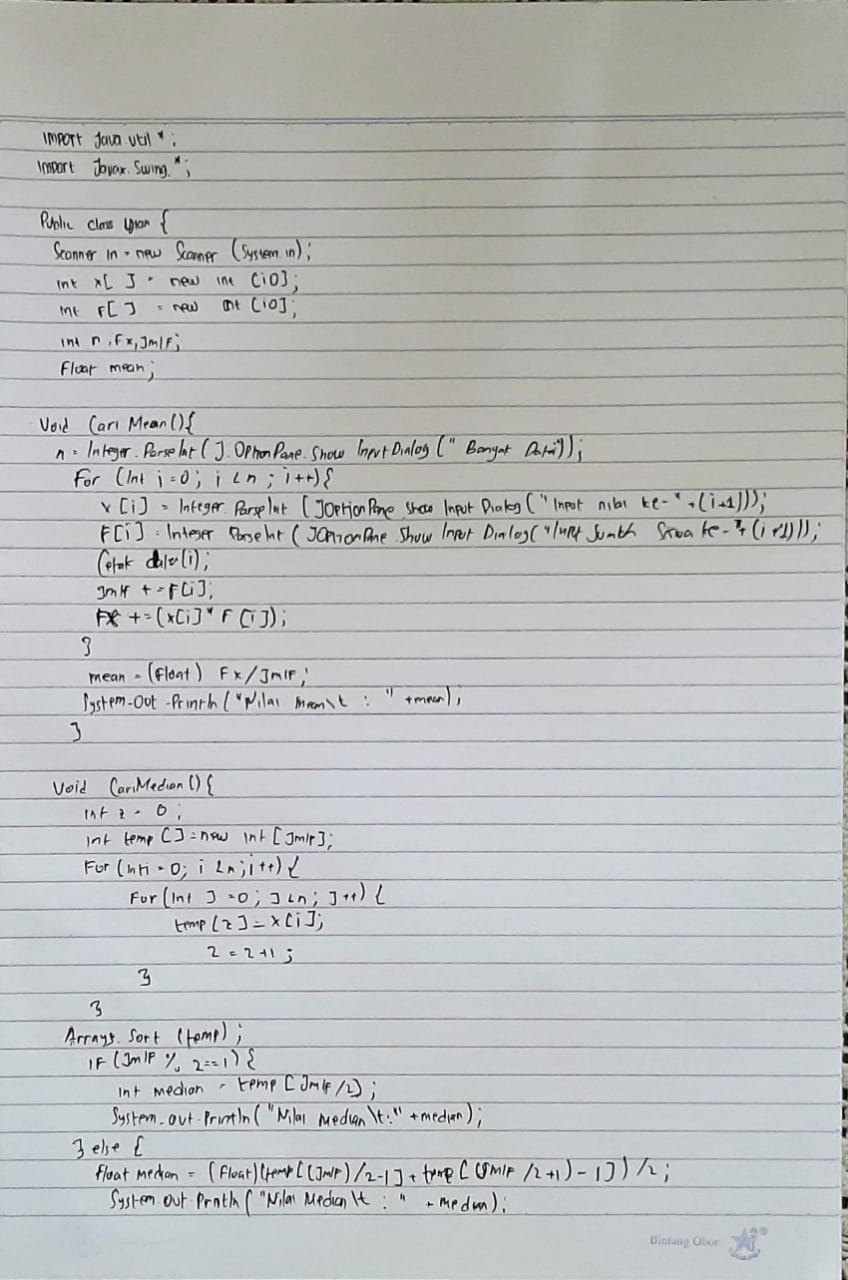 Import Java util *;
Import Javax. Swing. *;
Public class Ujian {
Scanner in = new Scanner (System.in);
int x[ ] = new int [10];
int F[ ] = new int [10];
int n, Fx, JmlF;
Float mean;
Void Cari Mean(){
n = Integer. Parse Int ( J. OptionPane. Show InputDialog (" Banyak Data"));
For (Int i=0; i <n ; i++){
x [i] = Integer. ParseInt (JOptionPane show Input Dialog ("Input nilai ke-" +(i+1)));
F[i] = Integer ParseInt ( JOptionPane. Show Input Dialog("Input Jumlah Siswa ke-"+ (i+1)));
Cetak data(i);
JmlF += F[i];
Fx += (x[i]* F [i]);
}
mean = (Float) Fx/JmlF;
System.Out.Println ("Nilai mean\t : " +mean);
}
Void CariMedian () {
Int z = 0 ;
Int temp []=new int [JmlF];
For (Inti = 0; i <n;i++) {
For (Int J =0; J <n; J++) {
temp [z] = x[i];
z = z+1 ;
}
}
Arrays. Sort (temp) ;
IF (JmlF % 2==1) {
Int median = temp [JmlF/2] ;
System.out.Println("Nilai median\t:" +median);
} else {
Float median = (Float)(temp[(JmlF)/2-1] + temp[(JmlF /2+1)-1])/2;
System out Println ("Nilai Median \t : " + median);
Bintang Obor